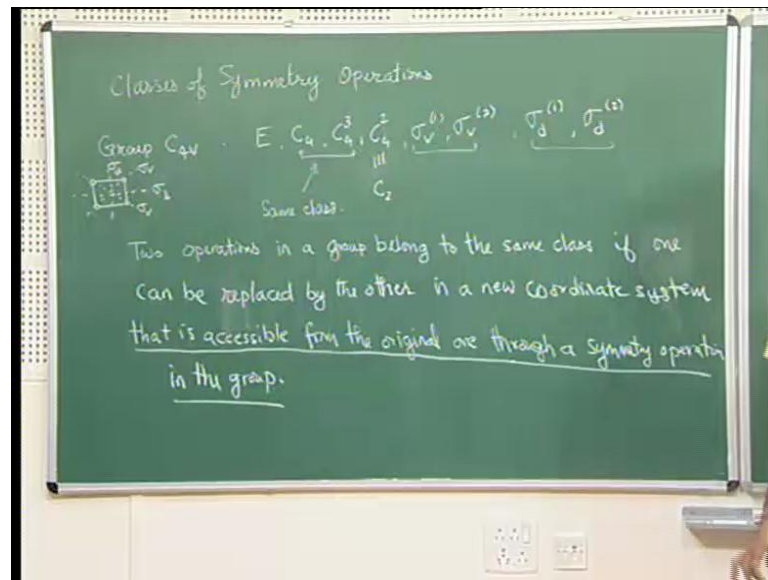 Classes of Symmetry Operations
Group C4v . E, C4, C4^3, C4^2, σv^(1), σv^(2), σd^(1), σd^(2)
≡
C2
σd σv
σd
σv
Same class.
Two operations in a group belong to the same class if one
can be replaced by the other in a new coordinate system
that is accessible from the original one through a symmetry operation
in the group.